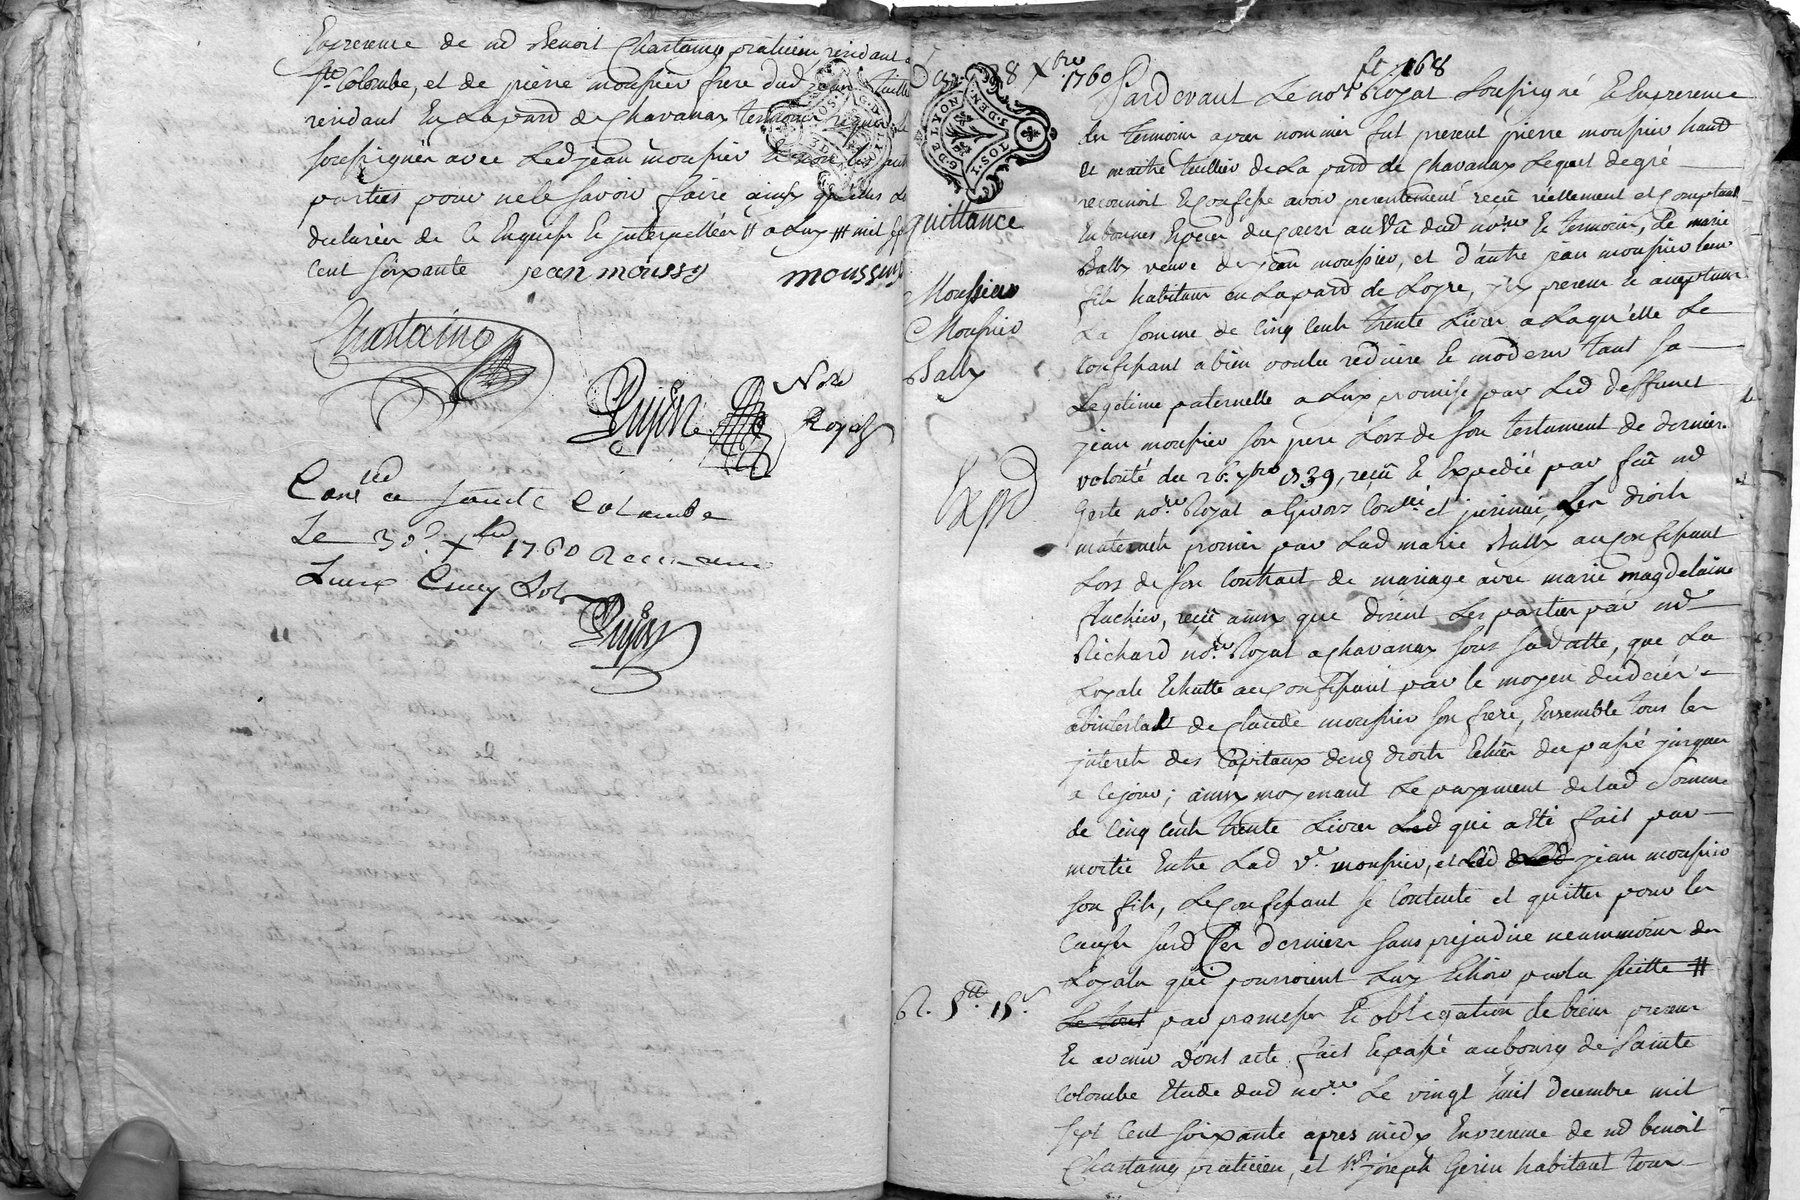 En presence de me Benoit Chastaing praticien, residant a
Ste Colombe, et de pierre moussier frere dud jean tuillier
residant En Lapard de Chavanax temoins requis
soussignés avec Led jean mousier Et non les autres
parties pour ne le savoir faire ainsy quelles
declarées de Ce Enquises Et interpellées # a Lux ### mil sept
Cent soixante jean moussy moussier
Chastaing
Dujon Nore
Royal
Conlé a sainte Colombe
Le 30e xbre 1760 Recu
Dujon
Du 28 xbre 1760
ft 168
G. DE LYON
quittance
Moussieu
Mousier
Bally
Expd
R. 5tt 15s
Pardevant Le nore Royal soussigné Et En presence
des temoins apres nommés fut present pierre mousier hand
Et maitre tuillier de La pard de Chavanax Lequel de gré
reconnoit Et Confesse avoir presentement reçu réellement et comptant
En bonnes Especes du Cours au Vû dud nore Et temoins, De marie
Bally veuve de jean mousier, et d'autre jean mousier Leur
fils habitans En Lapard de Loyre, ycy presens Et acceptans
La somme de Cinq Cents trente Livres a Laquelle Le
Confessant a bien voulu reduire Et moderer tant sa
Legitime paternelle a Lux promise par Led deffunct
jean mousier son pere Lors de son testament de derniere
volonté du 26 9bre 1739, reçû Et Expedié par feu me
Geste nore Royal a Givors Conlé et insinué, Les droits
maternels promis par Lad marie Bally au Confessant
Lors de son Contract de mariage avec marie magdelaine
flachier, reçû ainsy que disent Les parties par me
Richard nore Royal a Chavanax sous sa datte, que La
Loyale Echutte au Confessant par le moyen du deces
abintestat de Claude mousier son frere, Ensemble tous les
interets des Capitaux desd droits Echus du passé jusques
a Ce jour; ainsy moyenant Le payement de Lad somme
de Cinq Cents trente Livres Led qui a Eté fait par
moitié Entre Lad ve mousier, et Led jean mousier
son fils, Le Confessant se Contente et quitte pour les
Causes susd Ces derniers sans prejudice neanmoins des
Loyales qui pourroient Luy Echoir par la suitte #
Le tout par promesses Et obligation de biens presens
Et avenir Dont acte fait Et passé au bourg de sainte
Colombe Etude dud nore Le vingt huit decembre mil
sept Cent soixante apres midy En presence de me benoit
Chastaing praticien, et sr joseph Gerin habitant tous